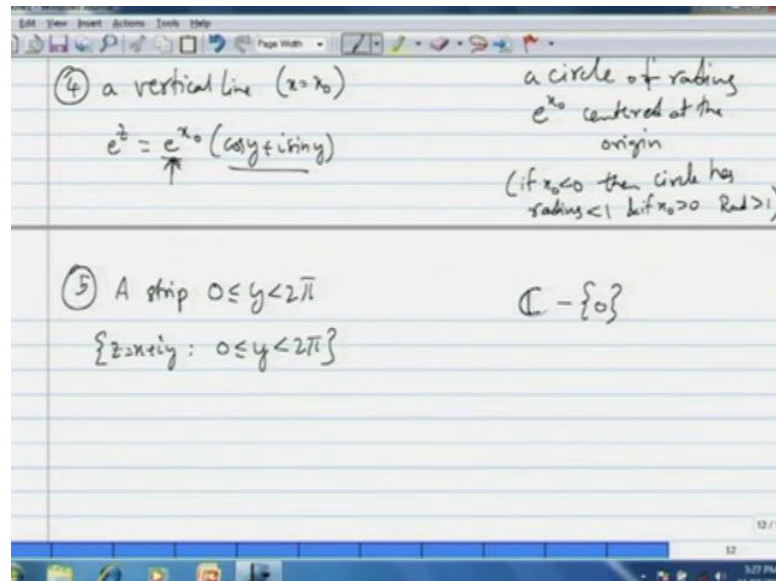 Edit View Insert Actions Tools Help
Page Width
④ a vertical line (x=x₀)
e^z = e^x₀ (cosy+isiny)
a circle of radius
e^x₀ centered at the
origin
(if x₀<0 then circle has
radius<1 but if x₀>0 Rad>1)
⑤ A strip 0≤y<2π
{z=x+iy : 0≤y<2π}
ℂ - {0}
12
5:27 PM